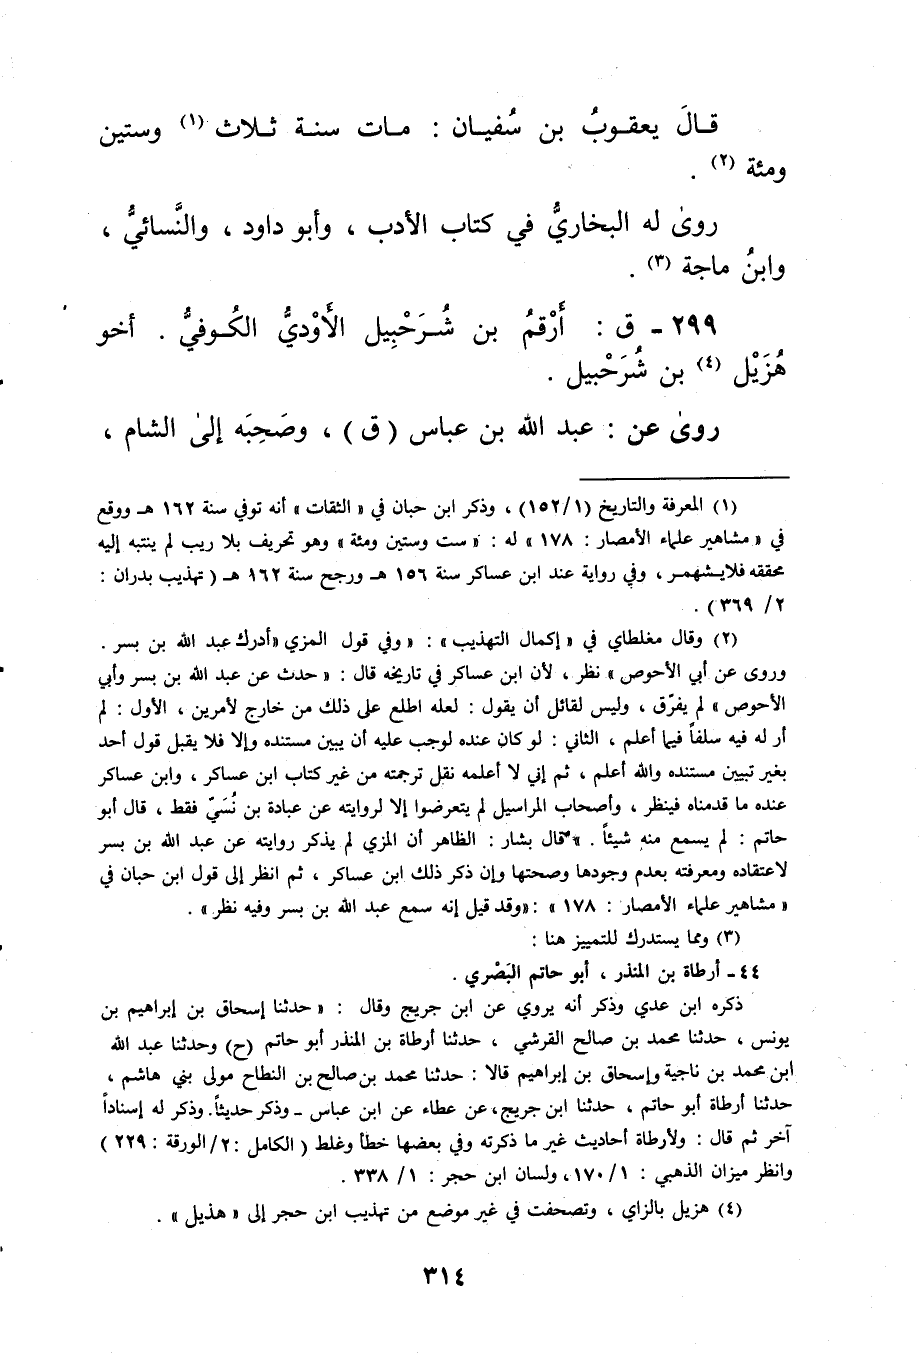 قـالَ يعقـوبُ بن سُفيـان : مـات سنـة ثـلاث (١) وستين
ومئة (٢) .
روىٰ له البخاريُّ في كتاب الأدب ، وأبو داود ، والنَّسائيُّ ،
وابنُ ماجة (٣) .
٢٩٩ ـ ق : أَرْقمُ بن شُـرَحْبِيل الأَوْديُّ الكُـوفيُّ . أخو
هُزَيْل (٤) بن شُرَحْبيل .
روىٰ عن : عبد الله بن عباس ( ق ) ، وصَحِبَه إلىٰ الشام ،
(١) المعرفة والتاريخ (١/ ١٥٢) ، وذكر ابن حبان في « الثقات » أنه توفي سنة ١٦٢ هـ ووقع
في « مشاهير علماء الأمصار : ١٧٨ » له : « ست وستين ومئة » وهو تحريف بلا ريب لم ينتبه إليه
محققه فلايشهمر ، وفي رواية عند ابن عساكر سنة ١٥٦ هـ ورجح سنة ١٦٢ هـ ( تهذيب بدران :
٢ / ٣٦٩ ) .
(٢) وقال مغلطاي في « إكمال التهذيب » : « وفي قول المزي «أدرك عبد الله بن بسر .
وروى عن أبي الأحوص » نظر ، لأن ابن عساكر في تاريخه قال : « حدث عن عبد الله بن بسر وأبي
الأحوص » لم يفرّق ، وليس لقائل أن يقول : لعله اطلع على ذلك من خارج لأمرين ، الأول : لم
أر له فيه سلفاً فيما أعلم ، الثاني : لو كان عنده لوجب عليه أن يبين مستنده وإلا فلا يقبل قول أحد
بغير تبيين مستنده والله أعلم ، ثم إني لا أعلمه نقل ترجمته من غير كتاب ابن عساكر ، وابن عساكر
عنده ما قدمناه فينظر ، وأصحاب المراسيل لم يتعرضوا إلا لروايته عن عبادة بن نُسَيّ فقط ، قال أبو
حاتم : لم يسمع منه شيئاً . » قال بشار : الظاهر أن المزي لم يذكر روايته عن عبد الله بن بسر
لاعتقاده ومعرفته بعدم وجودها وصحتها وإن ذكر ذلك ابن عساكر ، ثم انظر إلى قول ابن حبان في
« مشاهير علماء الأمصار : ١٧٨ » : «وقد قيل إنه سمع عبد الله بن بسر وفيه نظر» .
(٣) ومما يستدرك للتمييز هنا :
٤٤ ـ أرطاة بن المنذر ، أبو حاتم البَصْري .
ذكره ابن عدي وذكر أنه يروي عن ابن جريج وقال : « حدثنا إسحاق بن إبراهيم بن
يونس ، حدثنا محمد بن صالح القرشي ، حدثنا أرطاة بن المنذر أبو حاتم (ح) وحدثنا عبد الله
ابن محمد بن ناجية وإسحاق بن إبراهيم قالا : حدثنا محمد بن صالح بن النطاح مولى بني هاشم ،
حدثنا أرطاة أبو حاتم ، حدثنا ابن جريج، عن عطاء عن ابن عباس ـ وذكر حديثاً. وذكر له إسناداً
آخر ثم قال : ولأرطاة أحاديث غير ما ذكرته وفي بعضها خطأ وغلط ( الكامل :٢/ الورقة : ٢٢٩ )
وانظر ميزان الذهبي : ١/ ١٧٠، ولسان ابن حجر : ١/ ٣٣٨ .
(٤) هزيل بالزاي ، وتصحفت في غير موضع من تهذيب ابن حجر إلى « هذيل » .
٣١٤